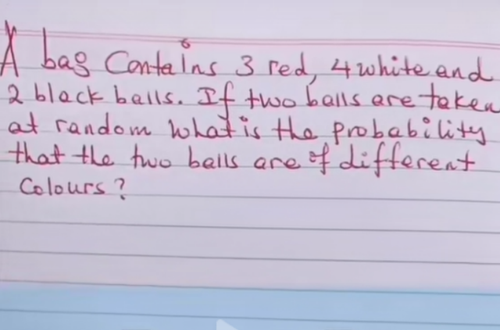 A bag Contains 3 red, 4 white and
2 black balls. If two balls are taken
at random what is the probability
that the two balls are of different
Colours?